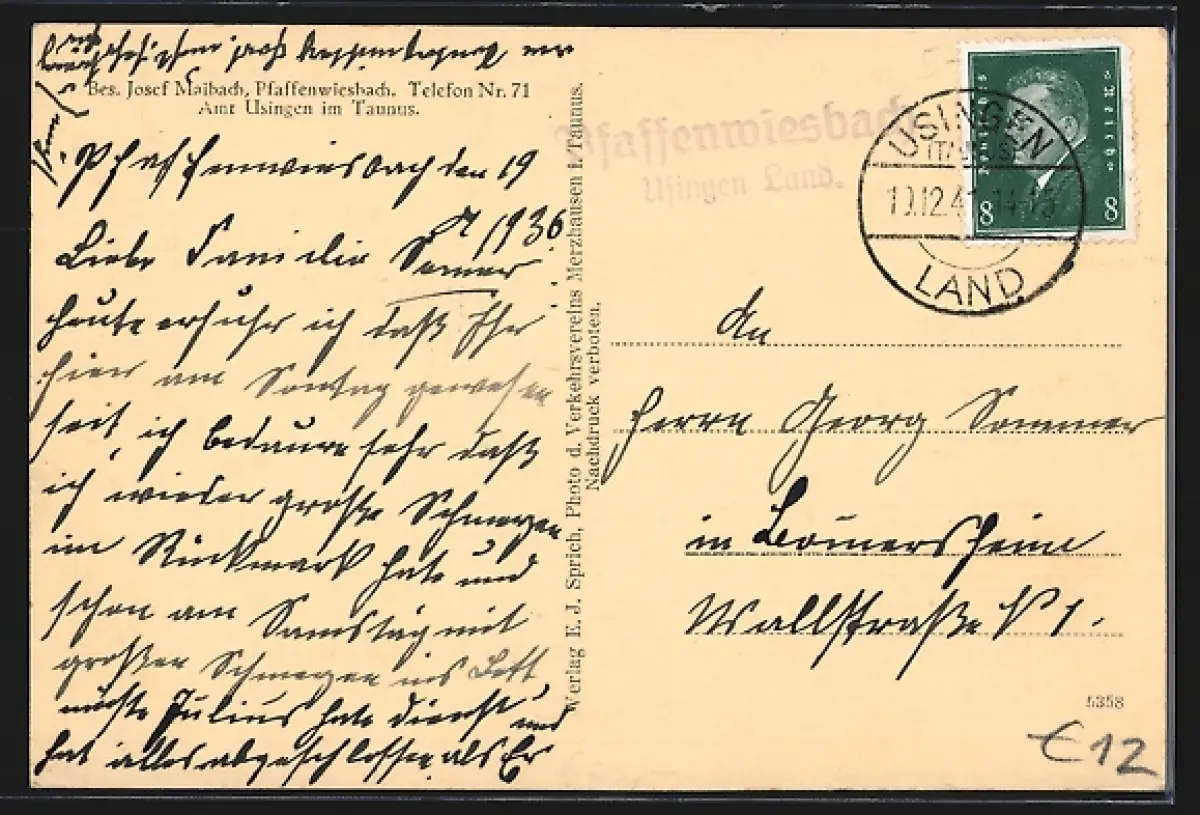 Bes. Josef Maibach, Pfaffenwiesbach. Telefon Nr. 71
Amt Usingen im Taunus.
Pfaffenwiesbach den 19
1936
Liebe Familie Somer
heute erfuhr ich daß Ihr
hier am Sontag gewesen
seit, ich bedaure sehr daß
ich wieder große Schmerzen
im Rückmark hate und
schon am Samstag mit
großen Schmerzen ins Bett
mußte Julius hate dienst und
hat alles abgeschlossen als Er
Verlag E. J. Sprich, Photo d. Verkehrsvereins Merzhausen i. Taunus.
Nachdruck verboten.
Pfaffenwiesbach
Usingen Land.
USINGEN
(TAUNUS)
LAND
Deutsches
Reich
8
8
An
Herrn Georg Sommer
in Bomersheim
Wallstraße N 1.
5358
€12